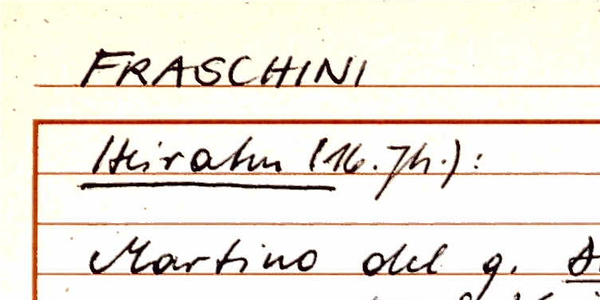 FRASCHINI
Heiraten (16. Jh.):
Martino del g.